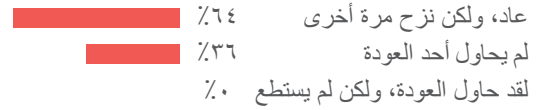 عاد، ولكن نزح مرة أخرى ٦٤٪
لم يحاول أحد العودة ٣٦٪
لقد حاول العودة، ولكن لم يستطع ٠٪